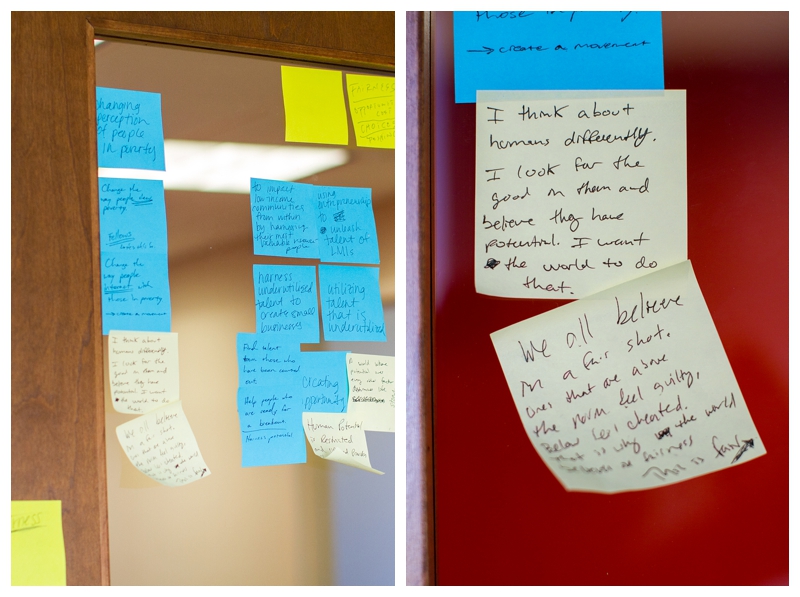 changing
perception
of people
in poverty
Change the
way people
poverty
Change the
way people
interact with
those in poverty
create a movement
I think about
humans differently
I look for the
good in them and
believe they have
potential. I want
the world to do
that.
We all believe
in a fair shot.
to impact
low income
communities
from within
by harnessing
their most
valuable
people
using
entrepreneurship
to
unleash
talent of
LMIs
harness
underutilized
talent to
create small
businesses
utilizing
talent
that is
underutilized
Find talent
from those who
have been counted
out
Help people who
are ready for
a breakout
creating
opportunity
A world where
potential was
Human Potential
is Restricted
FAIRNESS
→ create a movement
I think about
humans differently.
I look for the
good in them and
believe they have
potential. I want
the world to do
that.
We all believe
in a fair shot.
ones that are above
the norm feel guilty,
Below feel cheated.
that is why the world
fairness
This is fair